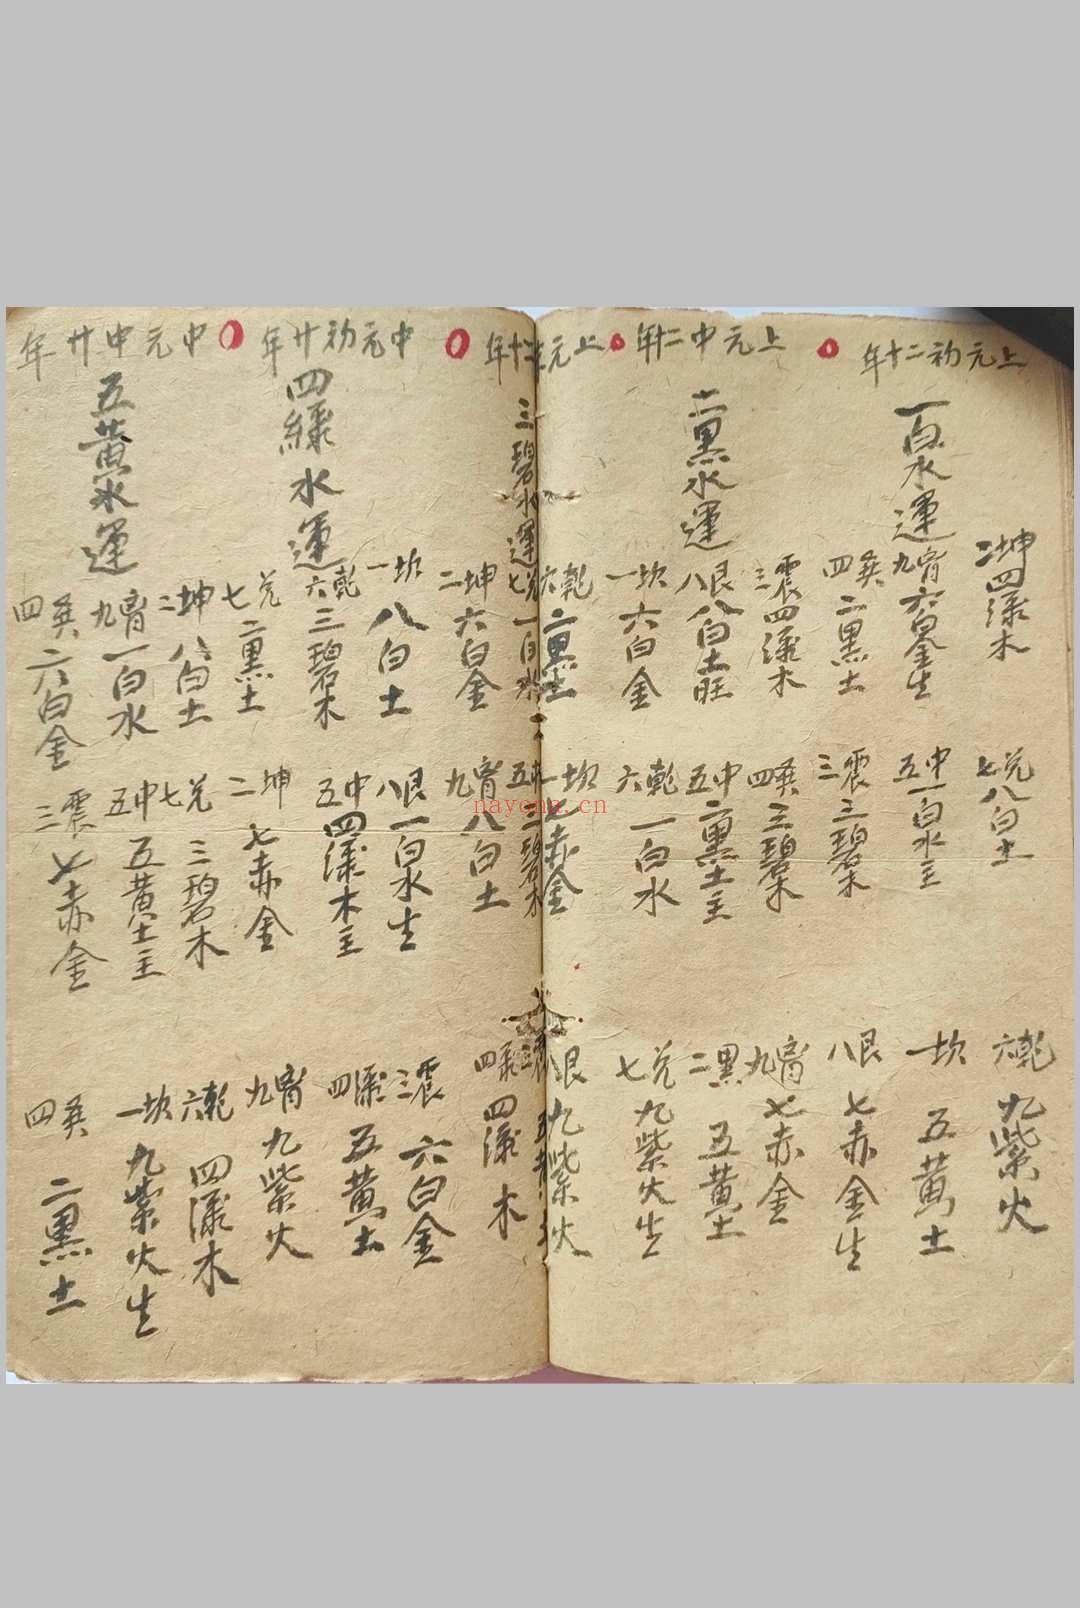 上元初二十年
一白水運
二坤 四綠木
九离 六白金生
四巽 二黑土
七兌 八白土
五中 一白水主
三震 三碧木
六乾 九紫火
一坎 五黃土
八艮 七赤金生
上元中二十年
二黑水運
三震 四綠木
八艮 八白土旺
一坎 六白金
四巽 三碧木
五中 二黑土主
六乾 一白水
九离 七赤金
二黑 五黃土
七兌 九紫火生
三碧水運
六乾 二黑土
七兌 一白水
二坤 六白金
一坎 七赤金
五中 三碧木
九离 八白土
八艮 九紫火
三震
四綠 四綠木
中元初廿年
四綠水運
一坎 八白土
六乾 三碧木
七兌 二黑土
八艮 一白水生
五中 四綠木主
二坤 七赤金
三震 六白金
四綠 五黃土
九离 九紫火
中元中廿年
五黃水運
二坤 八白土
九离 一白水
四巽 六白金
七兌 三碧木
五中 五黃土主
三震 七赤金
六乾 四綠木
一坎 九紫火生
四巽 二黑土
nayona.cn